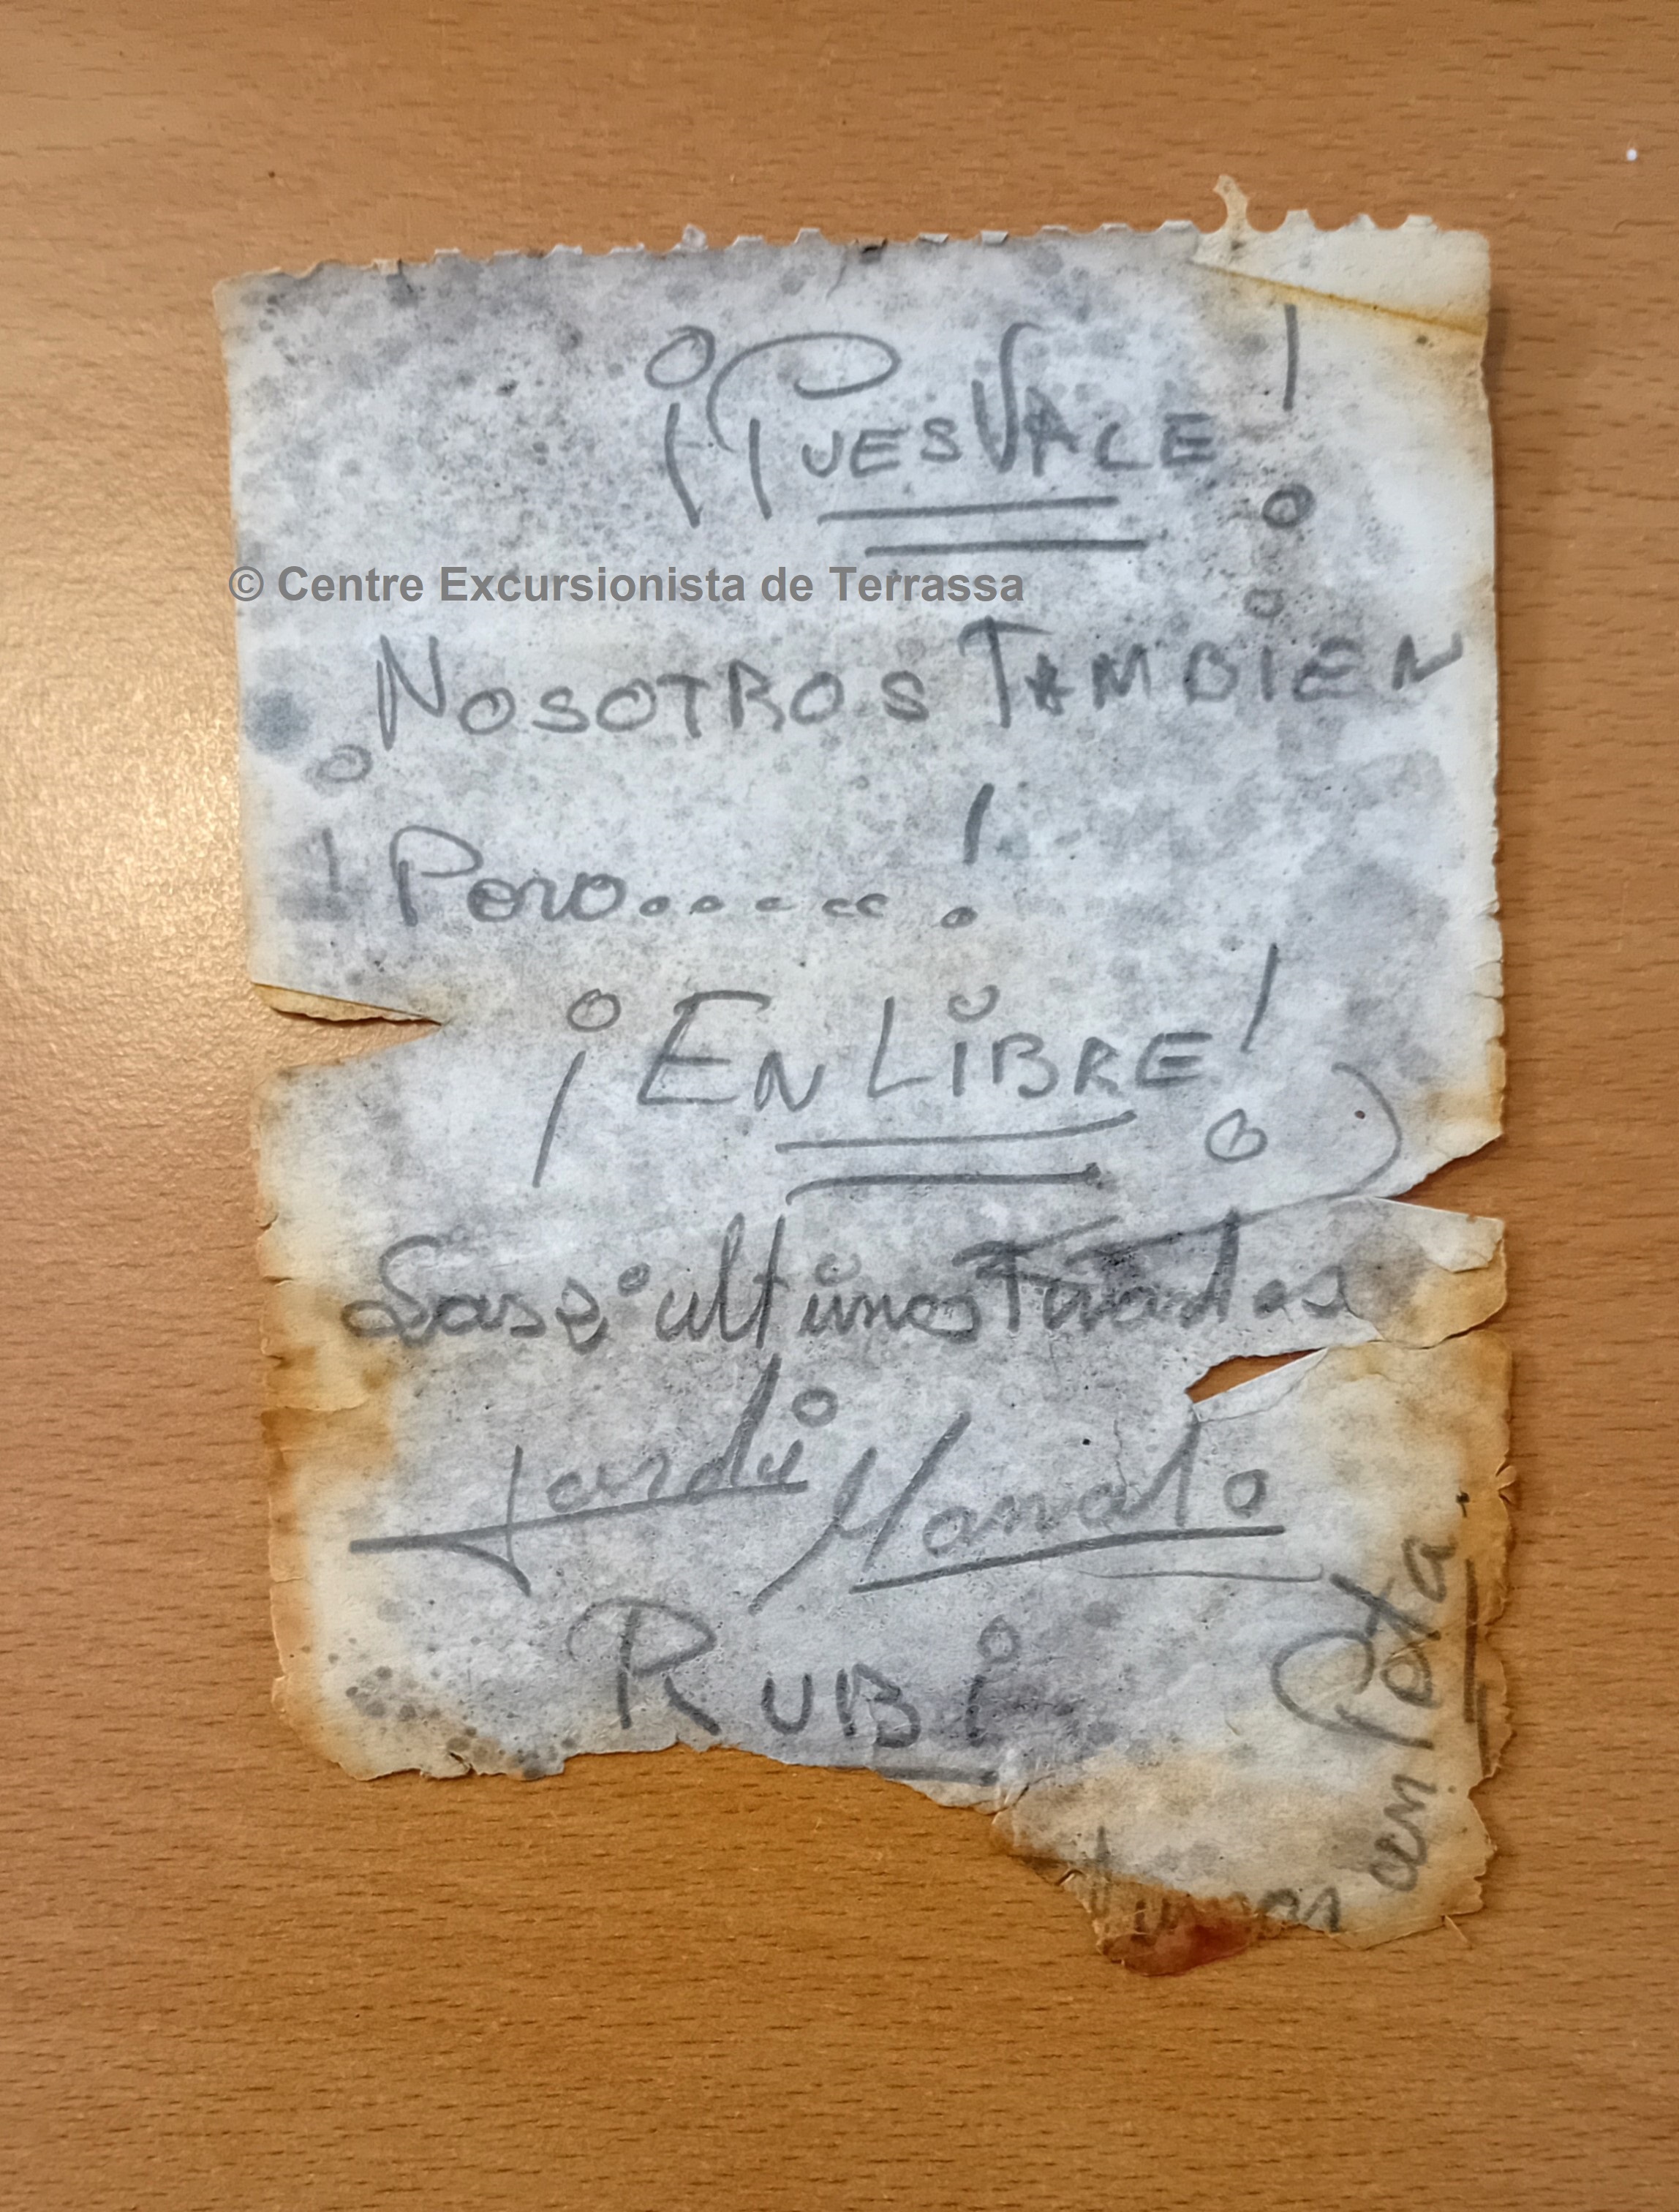 ¡Pues Vale!
© Centre Excursionista de Terrassa
Nosotros Tambien
¡Pero......!
¡En Libre!
Las 2 ultimas Tiradas
Jardi Manolo
Rubi
Peta